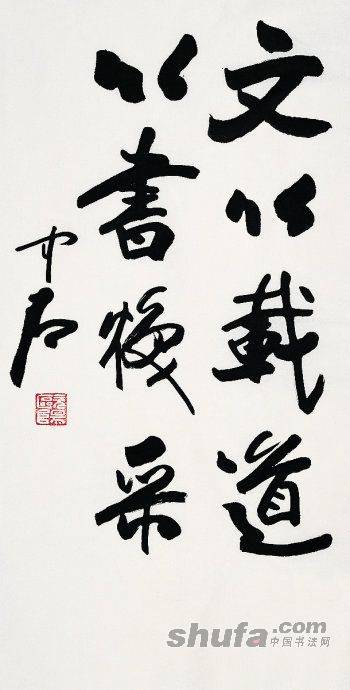 文以載道
以書煥采
中石
shufa.com
中国书法网